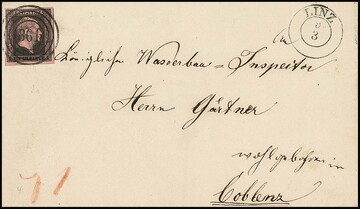 LINZ
5
3
An
Königlichen Wasserbau=Inspector
Herrn Gärtner
wohlgeboren in
Coblenz